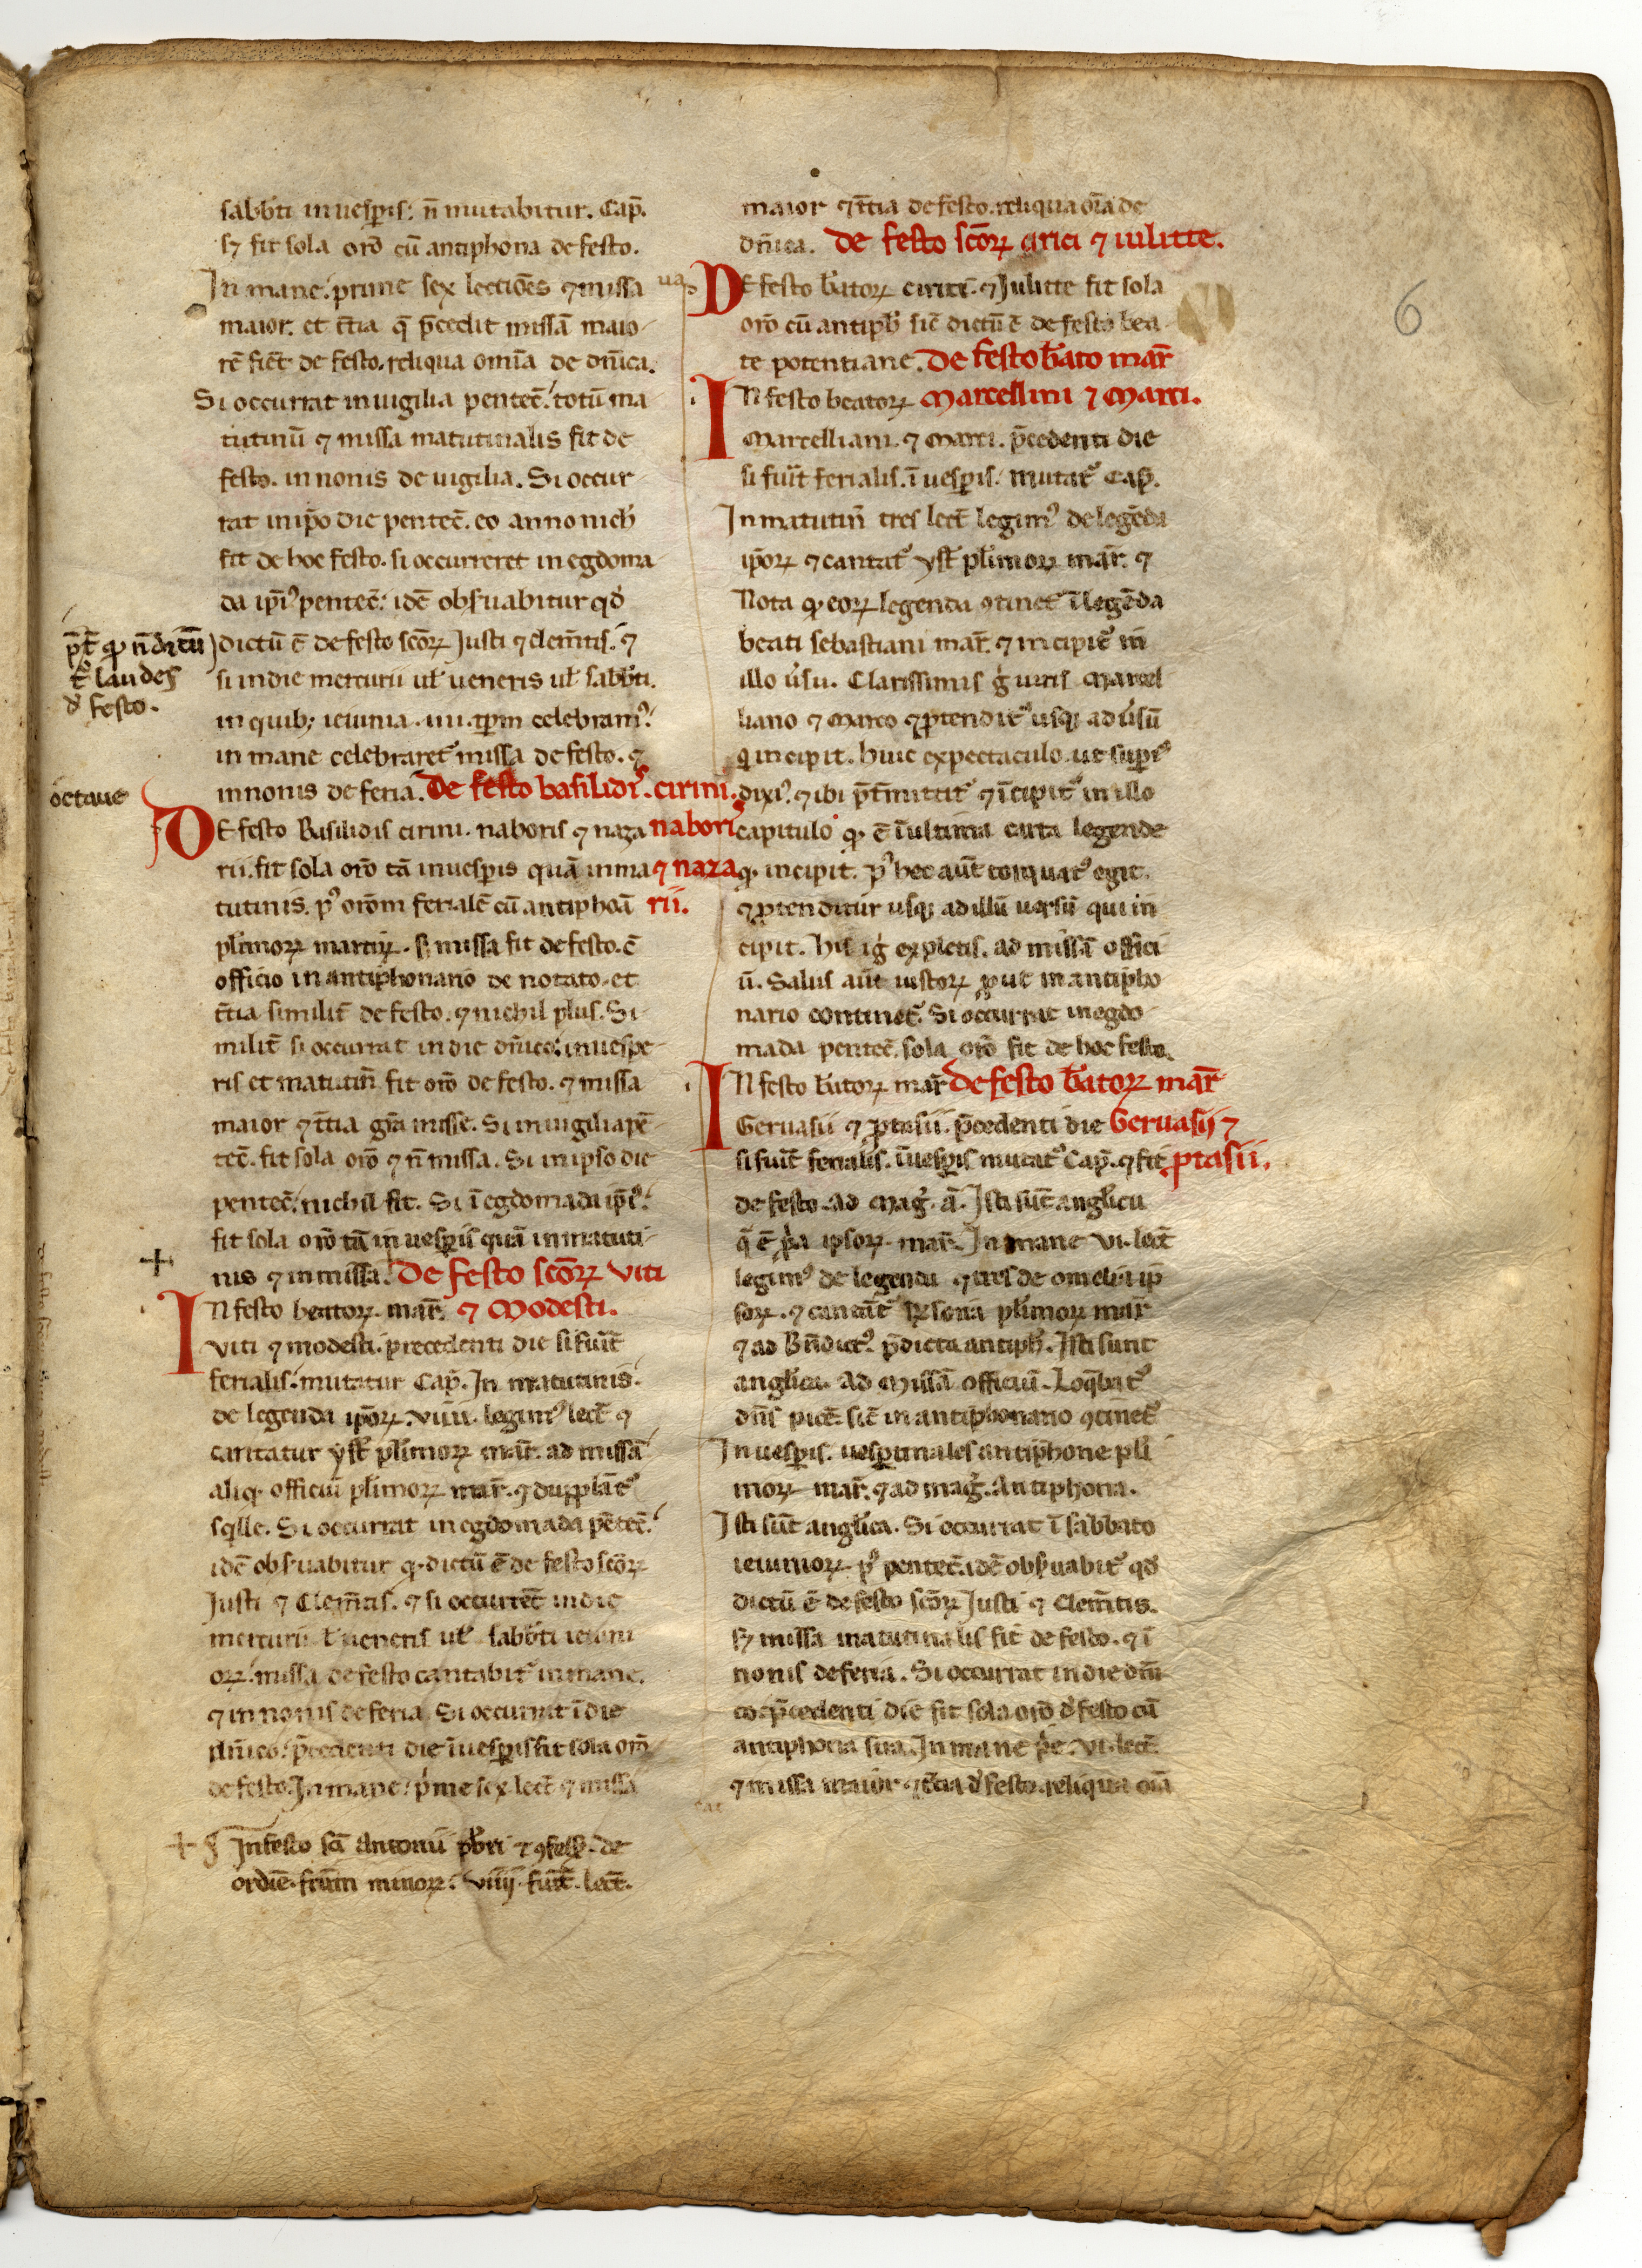 6
sabb̄ti in uesp̄is: n̄ mutabitur. Cap̄.
sꝫ fit sola or̄o cū antiphona de festo.
In mane. prime sex lectiōes ⁊ missa
maior. et t̄tia q̄ p̄cedit missā maio
rē fiēt de festo. reliqua om̄ia de dn̄ica.
Si occurrat in uigilia pentec̄. totū ma
tutinū ⁊ missa matutinalis fit de
festo. in nonis de uigilia. Si occur
rat in ip̄o die pentec̄. eo anno nich̄
fit de hoc festo. si occurreret in egdoma
da ip̄iꝰ pentec̄. idē obs̄uabitur qd̄
dictū ē de festo sc̄oꝝ Justi ⁊ clem̄tis. ⁊
si in die mercurii ul̄ ueneris ul̄ sabb̄ti.
in quibꝫ ieiunia .iiii. tp̄m celebramꝰ.
in mane celebraret᷑ missa de festo. ⁊
in nonis de feria. De festo basilidis. cirini.
p̄t̄ ꝙ n̄ dicū
t᷑ laudes
d̄ festo.
octaue
DE festo Basilidis cirini. naboris ⁊ naza naboris
rii. fit sola or̄o tā in uesp̄is quā in ma ⁊ naza
tutinis. pꝰ or̄om ferialē cū antiphoā rii.
pl̄imoꝝ martiꝝ. sꝫ missa fit de festo. ē
officio in antiphonario de notato. et
t̄tia similit̄ de festo. ⁊ nichil plus. Si
milit̄ si occurrat in die dn̄ico. in uespe
ris et matutin̄ fit or̄o de festo. ⁊ missa
maior ⁊ t̄tia gr̄a misse. Si in uigilia pē
tec̄. fit sola or̄o ⁊ n̄ missa. Si in ipso die
pentec̄. nichil fit. Si ī egdomada ip̄iꝰ.
fit sola or̄o tā in uesp̄is quā in matuti
nis ⁊ in missa. De festo sc̄oꝝ viti
IN festo beatoꝝ mar̄. ⁊ Modesti.
viti ⁊ modesti. precedenti die si fuit̄
ferialis. mutatur Cap̄. In matutinis.
de legenda ip̄oꝝ. viiii. legimꝰ lect̄ ⁊
cantatur yst̄ pl̄imoꝝ mar̄. ad missā
aliqͦ officiū pl̄imoꝝ mar̄. ⁊ dupplāt᷑
sqlle. Si occurrat in egdomada pētec̄.
idē obs̄uabitur qͦ dictū ē de festo sc̄oꝝ
Justi ⁊ Clem̄tis. ⁊ si occurret̄ in die
mercurii l̄ ueneris ul̄ sabb̄ti ieiuni
oꝝ. missa de festo cantabit᷑ in mane.
⁊ in nonis de feria. Si occurrat ī die
dn̄ico. p̄cedenti die ī uesp̄is fit sola or̄o
de festo. In mane. p̄me sex lect̄ ⁊ missa
In festo sc̄i Antonii p̄b̄ri ⁊ ꝯfess̄. de
ordīe. fr̄um minoꝝ. viiij. fiūt. lect̄.
maior ⁊ t̄tia de festo. reliqua om̄ia de
dn̄ica. De festo sc̄oꝝ cirici ⁊ iulitte.
DE festo b̄atoꝝ cirici. ⁊ Julitte fit sola
or̄o cū antiph̄ sic̄ dictū ē de festo bea
te potentiane. De festo b̄ato mar̄
IN festo beatoꝝ Marcellini ⁊ Marci.
Marcelliani. ⁊ Marci. p̄cedenti die
si fuit̄ ferialis. ī uesp̄is. mutat᷑ Cap̄.
In matutin̄ tres lect̄ legimꝰ de legēda
ip̄oꝝ ⁊ cantat᷑ yst̄ pl̄imoꝝ mar̄. ⁊
Nota qͦ eoꝝ legenda ꝯtinet᷑ ī legēda
beati sebastiani mar̄. ⁊ incipit᷑ in
illo ūsu. Clarissimis ḡ uiris Marcel
liano ⁊ Marco ⁊ ꝓtendit᷑ usqꝫ ad ūsū
q̄ incipit. Huic expectaculo. ut sup̄iꝰ
dixiꝰ. ⁊ ibi p̄t̄mittit᷑ ⁊ īcipit᷑ in illo
capitulo qͦ ē ī ultima carta legende
qͦ incipit. pꝰ hec aūt torquatꝰ egit.
⁊ ꝓtenditur usqꝫ ad illū uersū qui in
cipit. His iḡ expletis. ad missā offici
ū. Salus aūt iustoꝝ ꝓut in antipho
nario continet᷑. Si occurrat in egdo
mada pentec̄. sola or̄o fit de hoc festo.
IN festo b̄atoꝝ mar̄ De festo b̄atoꝝ mar̄
Geruasii ⁊ ꝓtasii. p̄cedenti die Geruasij ⁊
si fuit̄ ferialis. ī uesp̄is mutat᷑ Cap̄. ⁊ fit ꝓtasii.
de festo. ad Maḡ. ā. Isti sūt angl̄icu
q̄ ē p̄a ipsoꝝ mar̄. In mane vi. lect̄
legimꝰ de legenda ⁊ tres de omelia ip̄
soꝝ. ⁊ cantāt᷑ R̄sona pl̄imoꝝ mar̄
⁊ ad Bn̄dictꝰ. p̄dicta antiph̄. Isti sunt
angl̄ica. Ad Missā officiū. Loq̄bat᷑
dn̄s pacē. sic̄ in antiphonario ꝯtinet᷑
In uesp̄is. uesp̄tinales antiphone pl̄i
moꝝ mar̄. ⁊ ad maḡ. Antiphona.
Isti sūt angl̄ica. Si occurrat ī sabbato
ieiunioꝝ pꝰ pentec̄. idē obs̄uabit᷑ qd̄
dictū ē de festo sc̄oꝝ Justi ⁊ Clem̄tis.
sꝫ missa matutinalis fit de festo. ⁊ ī
nonis de feria. Si occurrat in die dn̄i
co. p̄cedenti die fit sola or̄o d̄ festo cū
antiphona sua. In mane p̄e. vi. lect̄.
⁊ missa maior ⁊ t̄cia d̄ festo. reliqua om̄ia